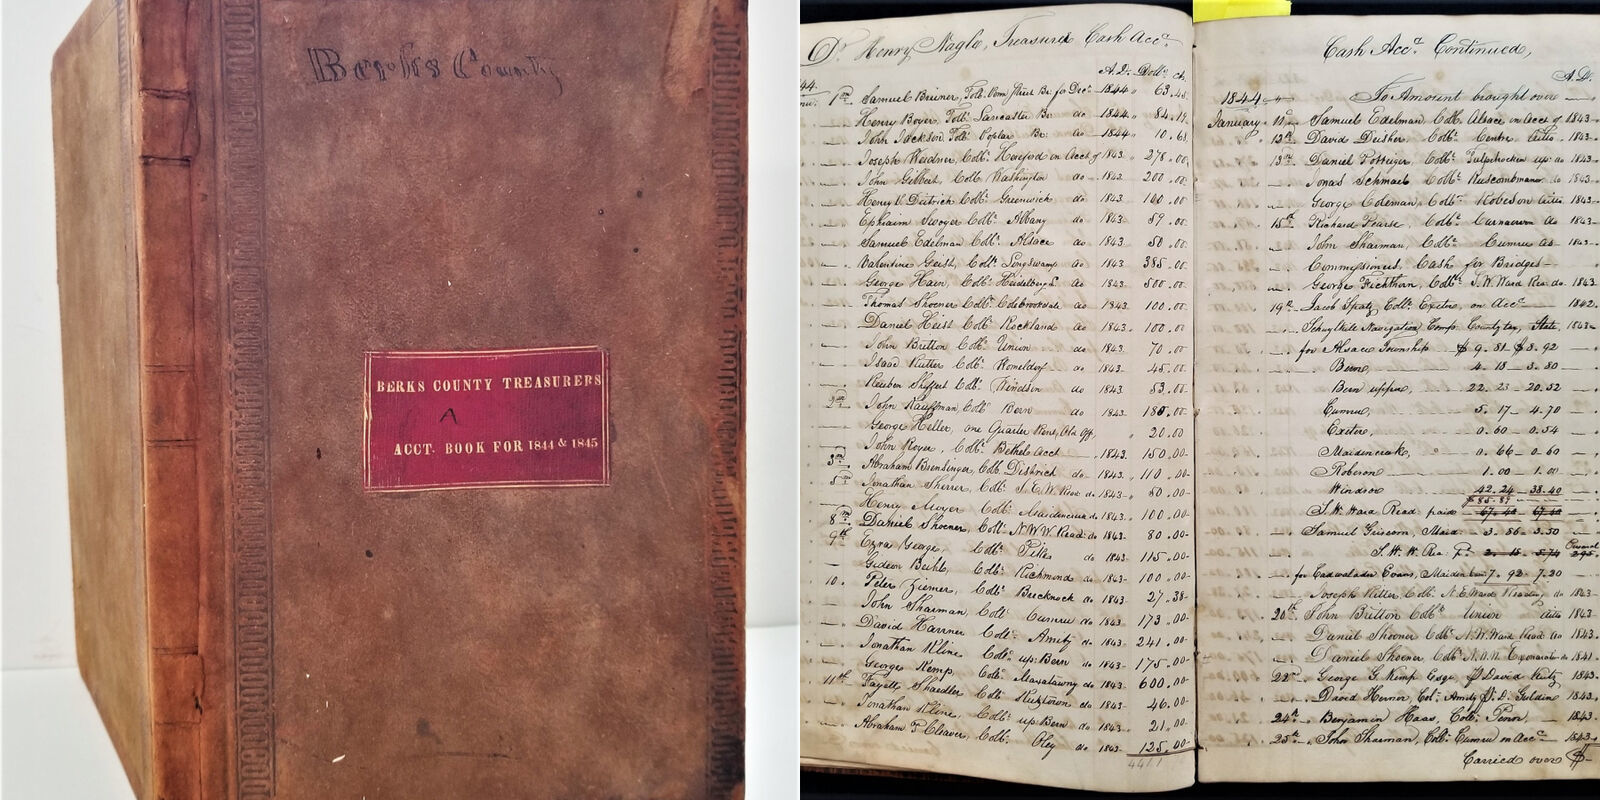 Berks County
BERKS COUNTY TREASURERS
A
ACCT. BOOK FOR 1844 & 1845
Dr. Henry Nagle, Treasurer Cash Acct.
A.D. Dolls. Ct.
44.
1st Samuel Bruner, Toll. Penn Street Br. for Decr. 1844 63.45
Henry Boyer, Tollr. Lancaster Br. do 1844 84.19
John Jackson Tollr. Poplar Br. do 1844 10.68
Joseph Weidner, Collr. Hereford on Acct. of 1843 278.00
John Gilbert, Collr. Washington do 1843 200.00
Henry V. Deitrich Collr. Greenwich do 1843 100.00
Ephraim Swoyer Collr. Albany do 1843 89.00
Samuel Edelman Collr. Alsace do 1843 50.00
Valentine Geist, Collr. Longswamp do 1843 385.00
George Hain, Collr. Heidelberg do 1843 500.00
Thomas Shoener Collr. Colebrookdale do 1843 100.00
Daniel Heist Collr. Rockland do 1843 100.00
John Britton Collr. Union do 1843 70.00
Isaac Rutter Collr. Womelsdorf do 1843 45.00
Reuben Shiffert Collr. Windsor do 1843 53.00
2nd John Kauffman, Collr. Bern do 1843 180.00
George Heller, one Quarter Rent, Old Off, 20.00
John Royer, Collr. Bethel Acct 1843 150.00
3rd Abraham Bunsinger, Collr. District do 1843 110.00
5th Jonathan Sherrer, Collr. S.E.W. Read. do 1843 80.00
Henry Moyer, Collr. Maidencreek do 1843 100.00
8th Daniel Shoener, Collr. N.W.W. Read. do 1843 80.00
9th Ezra George, Collr. Pike do 1843 115.00
Gideon Beihl, Collr. Richmond do 1843 100.00
10 Peter Ziemer, Collr. Brecknock do 1843 27.38
John Sharman, Collr. Cumru do 1843 173.00
David Harrner Collr. Amity do 1843 241.00
Jonathan Kline Collr. up: Bern do 1843 175.00
George Kemp, Collr. Maxatawny do 1843 600.00
11th Fayette Shaedler Collr. Kutztown do 1843 46.00
Jonathan Kline, Collr. up: Bern do 1843 21.00
Abraham P. Cleaver, Collr. Oley do 1843 125.00
4411
Cash Acct. Continued,
A.D.
1844 To Amount brought over
January 11th Samuel Edelman Collr. Alsace on Acct. of 1843
12th David Deisher Collr. Centre ditto 1843
13th Daniel Potteiger, Collr. Tulpehocken up: do 1843
Jonas Schmael Collr. Ruscombmanor do 1843
George Coleman, Collr. Robeson ditto 1843
15th Richard Pearse, Collr. Carnarvon do 1843
John Sharman, Collr. Cumru do 1843
Commissioners Cash for Bridges
George Fichthorn, Collr. S.W. Ward Rea. do 1843
19th Jacob Spatz Collr. Exeter, on Acct. 1842
Schuylkill Navigation Comp. County tax, State 1843
for Alsace Township $9.81 $8.92
Bern 4.18 3.80
Bern upper, 22.23 20.52
Cumru, 5.17 4.70
Exeter, 0.60 0.54
Maidencreek, 0.66 0.60
Robeson 1.00 1.00
Windsor 42.24 38.40
$85.87
S.W. Ward Read. paid 67.40 67.40
Samuel Griscom, Maid. 3.86 3.50
S.W.W. Rea. 2.15 5.74
for Cadwalader Evans, Maiden 7.92 7.20
Joseph Ritter Collr. N.E. Ward Reading do 1843
20th John Britton Collr. Union ditto 1843
Daniel Shoener Collr. N.W. Ward Read. do 1843
Daniel Shoener Collr. N.W.W. Exonerate do 1841
22nd George G. Kemp Esqr. p David Kutz 1843
David Herner, Col. Amity p. D. Guldin 1843
24th Benjamin Haas, Collr. Penn 1843
25th John Sharman, Collr. Cumru on Acct. 1843
Carried over $